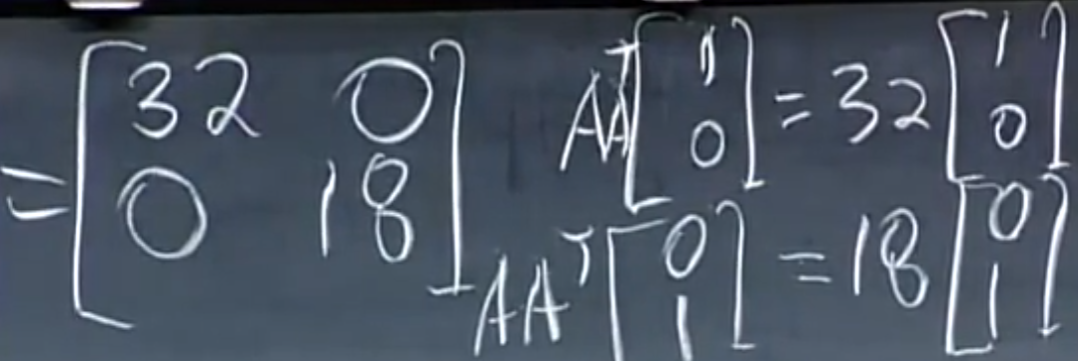 = [32 0; 0 18]
AAᵀ [1; 0] = 32 [1; 0]
AAᵀ [0; 1] = 18 [0; 1]